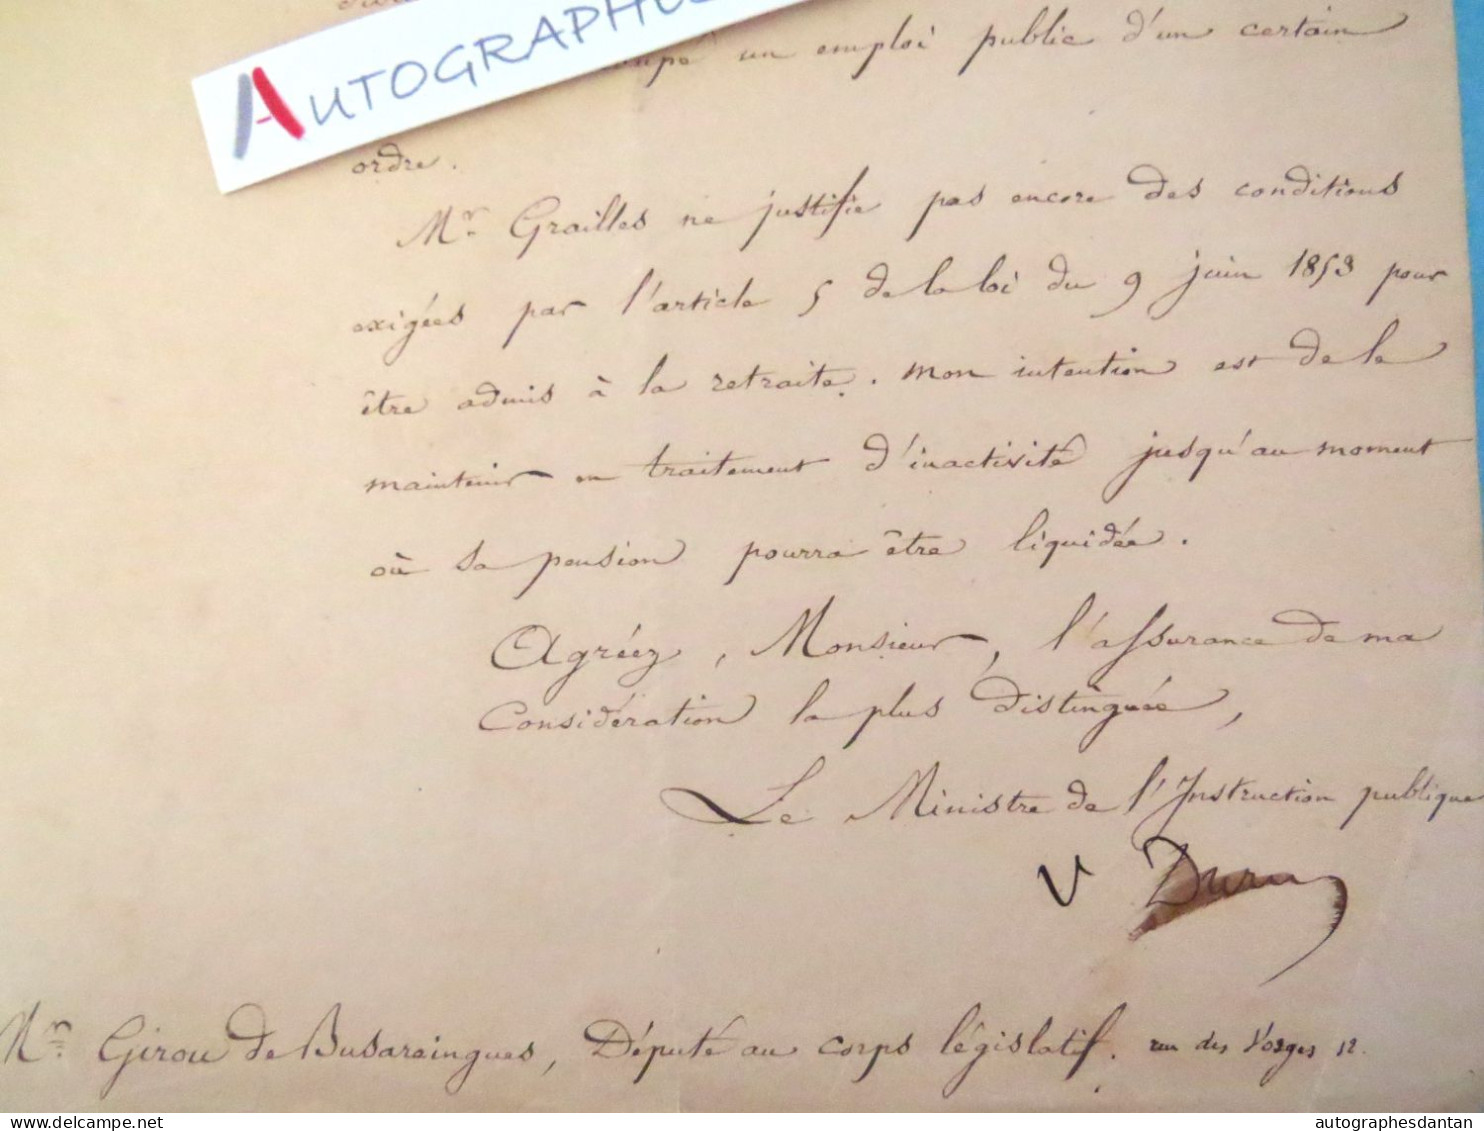 AUTOGRAPHES
un emploi public d'un certain
ordre.
Mr Grailles ne justifie pas encore des conditions
exigées par l'article 5 de la loi du 9 juin 1853 pour
être admis à la retraite. mon intention est de le
maintenir en traitement d'inactivité jusqu'au moment
où sa pension pourra être liquidée.
Agréez, Monsieur, l'assurance de ma
Considération la plus distinguée,
Le Ministre de l'Instruction publique
V Duruy
Mr. Girou de Busaraingues, Député au corps législatif. rue des Vosges 12.
autographesdantan
delcampe.net